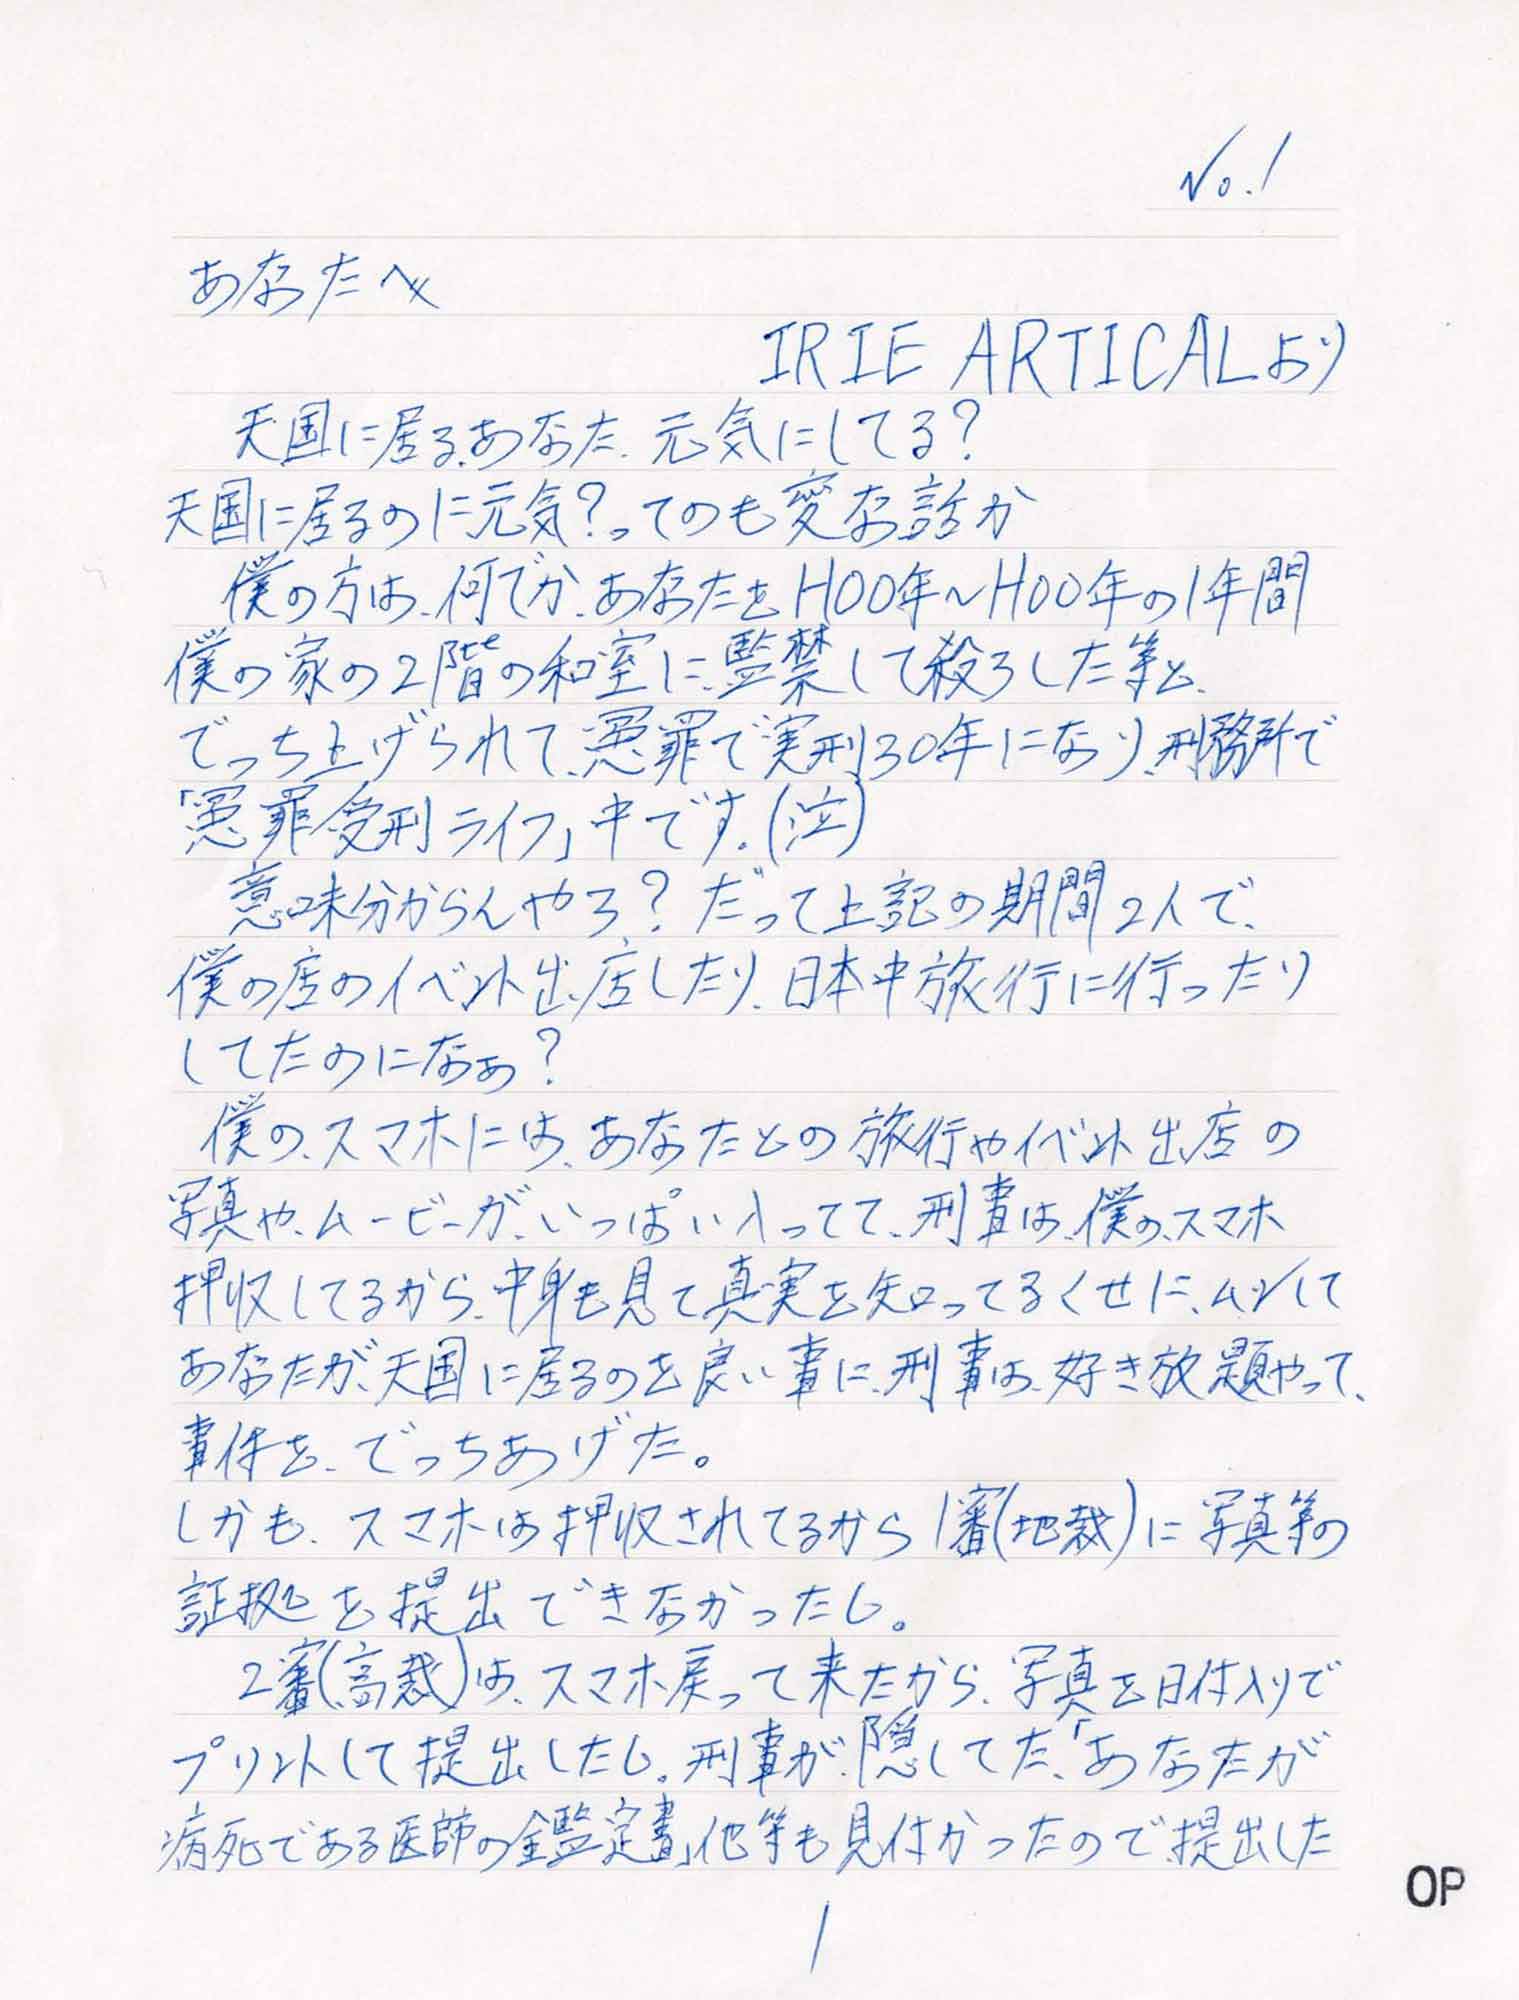 No.1
あなたへ
IRIE ARTICALより
天国に居る、あなた、元気にしてる?
天国に居るのに元気?ってのも変な話か
僕の方は、何でか、あなたをH00年~H00年の1年間
僕の家の2階の和室に、監禁して殺ろした等と、
でっち上げられて、冤罪で実刑30年になり、刑務所で
「冤罪受刑ライフ」中です。(泣)
意味分からんやろ?だって上記の期間2人で、
僕の店のイベント出店したり、日本中旅行に行ったり
してたのになぁ?
僕の、スマホには、あなたとの旅行やイベント出店の
写真や、ムービーが、いっぱい入ってて、刑事は、僕の、スマホ
押収してるから、中身も見て真実を知ってるくせに、ムシして
あなたが、天国に居るのを良い事に、刑事は、好き放題やって、
事件を、でっちあげた。
しかも、スマホは押収されてるから1審(地裁)に写真等の
証拠を提出できなかったし。
2審(高裁)は、スマホ戻って来たから、写真を日付入りで
プリントして提出したし。刑事が、隠してた、「あなたが
病死である医師の鑑定書」他等も見付かったので、提出した
1
OP